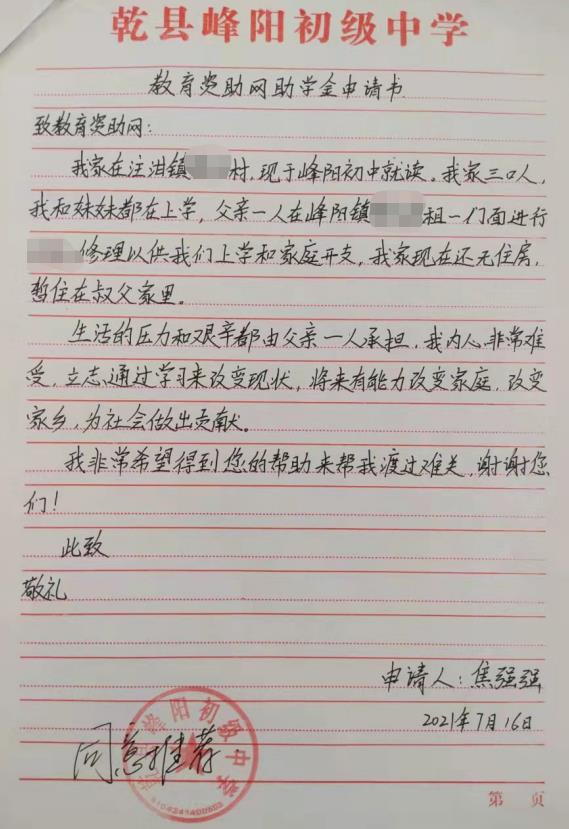 乾县峰阳初级中学
教育资助网助学金申请书
致教育资助网:
我家在注泔镇 村,现于峰阳初中就读。我家三口人,
我和妹妹都在上学,父亲一人在峰阳镇 租一门面进行
修理以供我们上学和家庭开支,我家现在还无住房,
暂住在叔父家里。
生活的压力和艰辛都由父亲一人承担,我内心非常难
受,立志通过学习来改变现状,将来有能力改变家庭,改变
家乡,为社会做出贡献。
我非常希望得到您的帮助来帮我渡过难关,谢谢您
们!
此致
敬礼
申请人:焦强强
2021年7月16日
同意推荐
乾县峰阳初级中学
第 页